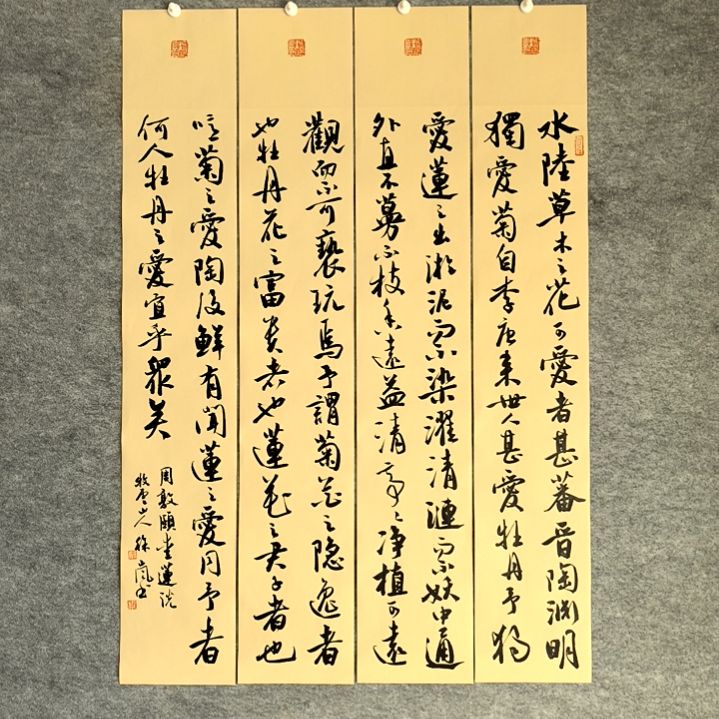 水陸草木之花可愛者甚蕃晋陶渊明
獨愛菊自李唐来世人甚愛牡丹予独
愛蓮之出淤泥而不染濯清漣而不妖中通
外直不蔓不枝香遠益清亭〻净植可遠
觀而不可褻玩焉予謂菊花之隐逸者
也牡丹花之富贵者也蓮花之君子者也
噫菊之愛陶后鲜有闻蓮之愛同予者
何人牡丹之愛宜乎眾矣
周敦頤爱蓮说
山人徐嵐书